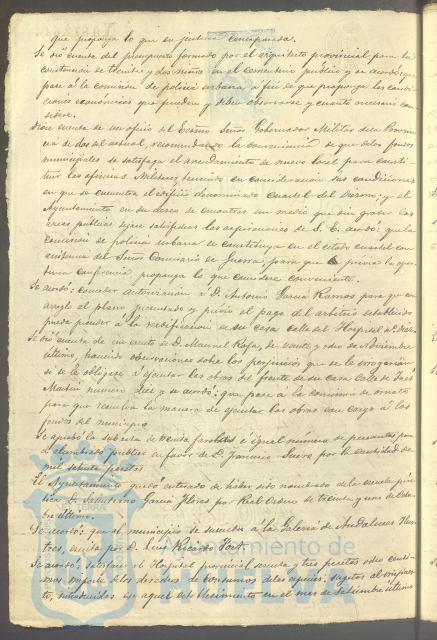 que proponga lo que en justicia corresponda.
Se dió cuenta del presupuesto formado por el arquitecto provincial para la
construccion de treinta y dos nichos en el cementerio público y se acordó: que
pase á la comision de policia urbana á fin de que proponga las condi-
ciones económicas que pueden y deben observarse y cuanto necesario con-
sidere.
Dióse cuenta de un oficio del Excmo Señor Gobernador Militar de la Provin-
cia de dos del actual, recomendando la conveniencia de que de los fondos
municipales se satisfaga el arrendamiento de nuevo local para consti-
tuir las oficinas Militares teniendo en consideracion las condiciones
en que se encuentra el edificio denominado Cuartel del y el
Ayuntamiento en su deseo de encontrar un medio que sin gravar las
arcas públicas dejase satisfechas las aspiraciones de S. E. acordó: que la
comision de policia urbana se constituya en el citado cuartel con
asistencia del Señor Comisario de Guerra, para que previa la opor-
tuna conferencia proponga lo que considere conveniente.
Se acordó: conceder autorizacion á D. Antonio Garcia Ramos para que con
arreglo al plano presentado y previo el pago del arbitrio establecido
pueda proceder á la reedificacion de su casa calle del Hospital nº diez.
Se dió cuenta de un escrito de D. Manuel Rofa, de veinte y ocho de Noviembre
último, haciendo observaciones sobre los perjuicios que se le irrogarian
si se le obligase á ejecutar las obras del frente de su casa calle de San
Martin número diez y se acordó: que pase á la comision de ornato
para que resuelva la manera de ejecutar las obras con cargo á los
fondos del municipio.
Se aprobó la subasta de treinta faroles é igual número de pescantes para
el alumbrado público en favor de D. Francisco por la cantidad de
mil setenta pesetas.
El Ayuntamiento quedó enterado de haber sido nombrado de la escuela prác-
tica D. Sebastian Garcia Floras por Real Orden de treinta y uno de Octu-
bre último.
Se acordó: que el municipio se suscriba á la Galeria de Andaluces Ilus-
tres, escrita por D. Luis Ricardo Fors.
Se acordó: satisfacer al Hospital provincial sesenta y tres pesetas ocho centi-
mos importe de los derechos de consumos de las especies, sujetas al impues-
to, introducidas en aquel establecimiento en el mes de Setiembre último
Ayuntamiento de
HUELVA